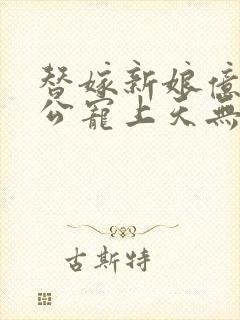 替嫁新娘億
公寵上天無
古斯特